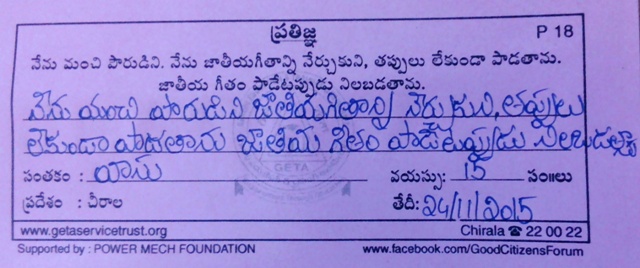 ప్రతిజ్ఞ P 18
నేను మంచి పౌరుడిని. నేను జాతీయగీతాన్ని నేర్చుకుని, తప్పులు లేకుండా పాడతాను.
జాతీయ గీతం పాడేటప్పుడు నిలబడతాను.
నేను మంచి పౌరుడిని జాతీయగీతాన్ని నేర్చుకుని, తప్పులు
లేకుండా పాడతాను జాతీయ గీతం పాడేటప్పుడు నిలబడతాను
GETA
సంతకం : యాసు వయస్సు: 15 సం॥లు
ప్రదేశం : చీరాల తేదీ: 24/11/2015
www.getaservicetrust.org Chirala ☎ 22 00 22
Supported by : POWER MECH FOUNDATION www.facebook.com/GoodCitizensForum